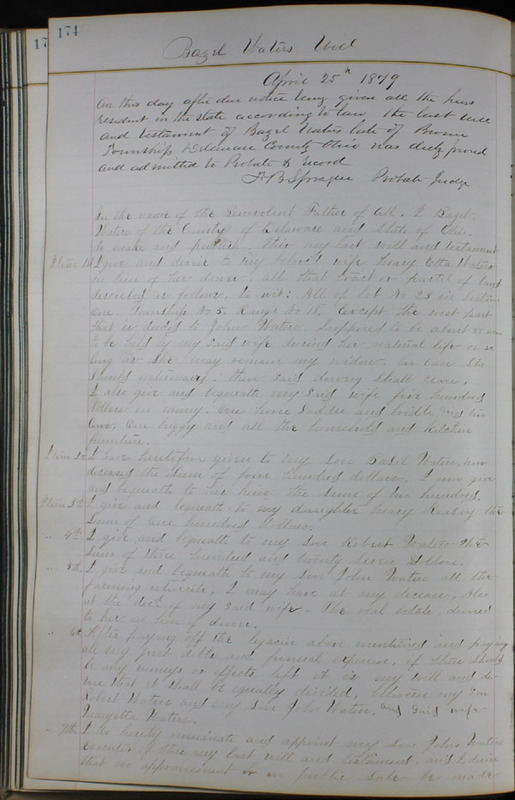 174
17
Bazil Waters Will
April 25th 1879
On this day after due notice being given all the heirs
resident in the State according to law the last will
and testament of Bazil Waters late of Brown
Township Delaware County Ohio was duly proved
and admitted to Probate & record
F B Sprague Probate Judge
In the name of the Benevolent Father of all. I Bazil
Waters of the County of Delaware and State of Ohio.
do make and publish this my last will and testament
Item 1st I give and devise to my beloved wife Etta Waters
in lieu of her dower. all that tract or parcel of land
described as follows, to wit: All of lot No 23 in section
one. Township No 5. Range No 18. Except the west part
that is deeded to John Waters. Supposed to be about
to be held by my said wife during her natural life or so
long as she may remain my widow. In case she
should intermarry. then said dowry shall cease.
I also give and bequeath my said wife five hundred
dollars in money. one horse saddle and bridle and two
cows. one buggy and all the household and kitchen
furniture.
Item 2d I have heretofore given to my son Basil Waters, now
deceased the sum of four hundred dollars. I now give
and bequeath to his heirs the sum of one hundred.
Item 3d I give and bequeath to my daughter the
sum of one hundred dollars.
" 4th I give and bequeath to my son Robert Waters the
sum of three hundred and twenty seven dollars.
" 5th I give and bequeath to my son John Waters all the
farming utensils, I may have at my decease, Also
at the dec. of my said wife - The real estate, devised
to her in lieu of dower.
" 6th After paying off the legacies above mentioned and paying
all my just debts and funeral expenses, if there should
be any moneys or effects left it is my will and de-
sire that it shall be equally divided, between my son
Robert Waters and my son John Waters, and said wife
Waters.
" 7th I do hereby nominate and appoint my son John Waters
executor of this my last will and testament, and I desire
that no appraisement or no public sale be made